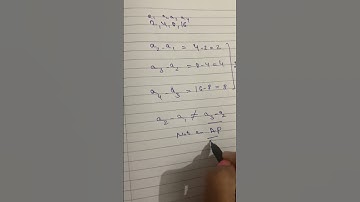 a₁ a₂ a₃ a₄
2, 4, 8, 16
a₂ - a₁ = 4-2 = 2
a₃ - a₂ = 8-4 = 4
a₄ - a₃ = 16-8 = 8
a₂ - a₁ ≠ a₃ - a₂
Not an AP